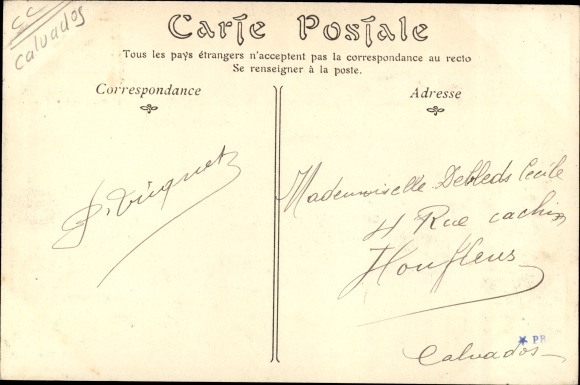 CC
Calvados
Carte Postale
Tous les pays étrangers n'acceptent pas la correspondance au recto
Se renseigner à la poste.
Correspondance
Adresse
Mademoiselle Debleds Cecile
4 Rue cachin
Honfleurs
Calvados
PR